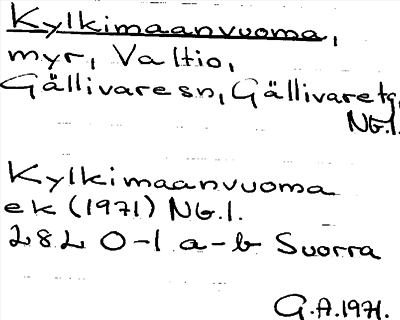 Kylkimaanvuoma,
myr, Valtio,
Gällivaresn, Gällivaretg,
Nb.l.
Kylkimaanvuoma
ek (1971) Nb.l.
28L 0-1 a-b Suorra
G.A. 1971.